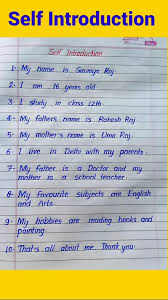 Self Introduction
Self Introduction
1- My name is Saumya Raj.
2- I am 16 years old
3- I study in class 12th
4- My fathers name is Rakesh Raj.
5- My mother's name is Uma Raj.
6- I live in Delhi with my parents.
7- My father is a Doctor and my
mother is a school teacher.
8- My favourite subjects are English
and Arts.
9- My hobbies are reading books and
painting.
10- That's all about me. Thank you.